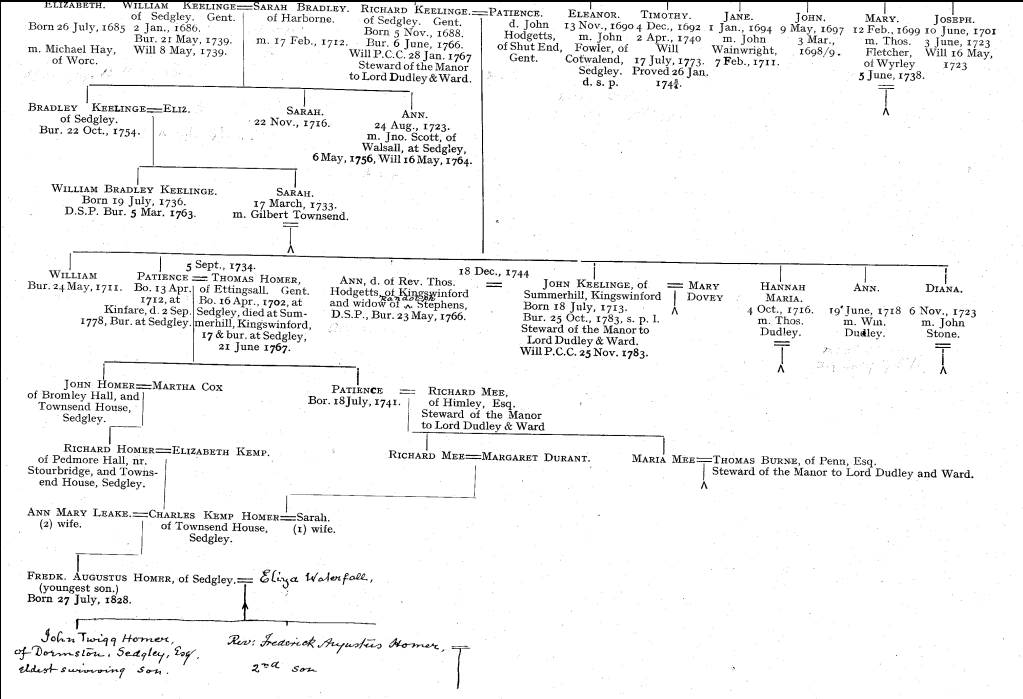 ELIZABETH.
Born 26 July, 1685
m. Michael Hay,
of Worc.
WILLIAM KEELINGE=SARAH BRADLEY.
of Sedgley. Gent.
2 Jan., 1686.
Bur. 21 May, 1739.
Will 8 May, 1739.
of Harborne.
m. 17 Feb., 1712.
RICHARD KEELINGE.=PATIENCE.
of Sedgley. Gent.
Born 5 Nov., 1688.
Bur. 6 June, 1766.
Will P.C.C. 28 Jan. 1767
Steward of the Manor
to Lord Dudley & Ward.
d. John
Hodgetts,
of Shut End,
Gent.
ELEANOR.
13 Nov., 1690
m. John
Fowler, of
Cotwalend,
Sedgley.
d. s. p.
TIMOTHY.
4 Dec., 1692
2 Apr., 1740
Will
17 July, 1773.
Proved 26 Jan.
JANE.
1 Jan., 1694
m. John
Wainwright,
7 Feb., 1711.
JOHN.
9 May, 1697
3 Mar.,
1698/9.
MARY.
12 Feb., 1699
m. Thos.
Fletcher,
of Wyrley
5 June, 1738.
JOSEPH.
10 June, 1701
3 June, 1723
Will 16 May,
1723
BRADLEY KEELINGE=ELIZ.
of Sedgley.
Bur. 22 Oct., 1754.
SARAH.
22 Nov., 1716.
ANN.
24 Aug., 1723.
m. Jno. Scott, of
Walsall, at Sedgley,
6 May, 1756, Will 16 May, 1764.
WILLIAM BRADLEY KEELINGE.
Born 19 July, 1736.
D.S.P. Bur. 5 Mar. 1763.
SARAH.
17 March, 1733.
m. Gilbert Townsend.
WILLIAM
Bur. 24 May, 1711.
5 Sept., 1734.
PATIENCE = THOMAS HOMER,
Bo. 13 Apr.
1712, at
Kinfare, d. 2 Sep.
1778, Bur. at Sedgley.
of Ettingsall. Gent.
Bo. 16 Apr., 1702, at
Sedgley, died at Sum-
merhill, Kingswinford,
17 & bur. at Sedgley,
21 June 1767.
18 Dec., 1744
ANN, d. of Rev. Thos.
Hodgetts, of Kingswinford
Randolph
and widow of ^ Stephens,
D.S.P., Bur. 23 May, 1766.
=
JOHN KEELINGE, of
Summerhill, Kingswinford
Born 18 July, 1713.
Bur. 25 Oct., 1783, s. p. l.
Steward of the Manor to
Lord Dudley & Ward.
Will P.C.C. 25 Nov. 1783.
= MARY
DOVEY
HANNAH
MARIA.
4 Oct., 1716.
m. Thos.
Dudley.
ANN.
19 June, 1718
m. Wm.
Dudley.
DIANA.
6 Nov., 1723
m. John
Stone.
JOHN HOMER=MARTHA COX
of Bromley Hall, and
Townsend House,
Sedgley.
PATIENCE = RICHARD MEE,
Bor. 18 July, 1741.
of Himley, Esq.
Steward of the Manor
to Lord Dudley & Ward
RICHARD HOMER=ELIZABETH KEMP.
of Pedmore Hall, nr.
Stourbridge, and Towns-
end House, Sedgley.
RICHARD MEE=MARGARET DURANT.
MARIA MEE=THOMAS BURNE, of Penn, Esq.
Steward of the Manor to Lord Dudley and Ward.
ANN MARY LEAKE.=CHARLES KEMP HOMER=Sarah.
(2) wife.
of Townsend House,
Sedgley.
(1) wife.
FREDK. AUGUSTUS HOMER, of Sedgley.= Eliza Waterfall,
(youngest son.)
Born 27 July, 1828.
John Twigg Homer,
of Dormston, Sedgley, Esq,
eldest surviving son.
Rev: Frederick Augustus Homer, =
2nd son